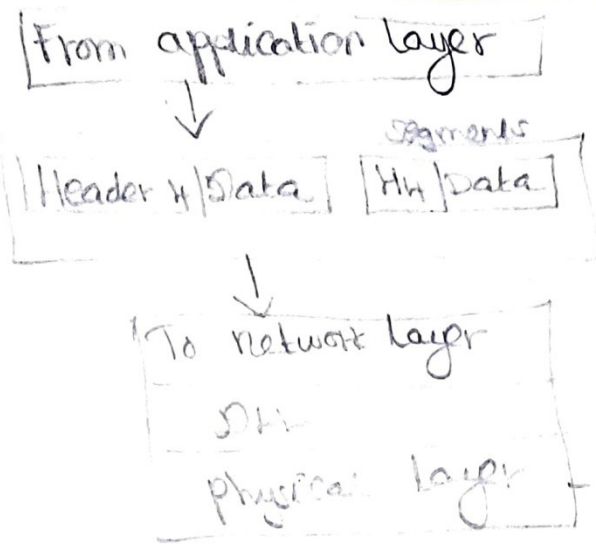 From application layer
segments
Header H Data HH Data
To network layer
physical layer